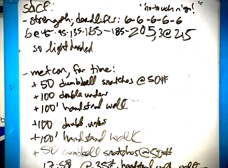 SDCF:
- strength; deadlifts: 6-6-6-6-6-6
6@45-95-135-165-185-205, 3@215
so light headed
- metcon, for time:
+50 dumbbell snatches @50#
+100 double unders
+100' handstand walk
+100 doub. unders
+100' handstand walk
+50 dumbbell snatches @50#
17:58 @35#, handstand walk